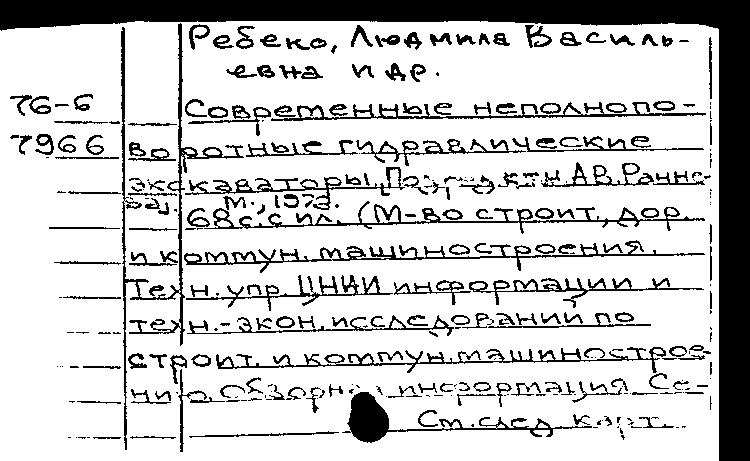 Ребеко, Людмила Василь-
евна и др.
76-6 Современные неполнопо-
7966 воротные гидравлические
экскаваторы. Под ред. ктн. А.В. Ранне-
М., 197
68 с. с ил. (М-во строит., дор.
и коммун. машиностроения.
Техн. упр. ЦНИИ информации и
техн.-экон. исследований по
строит. и коммун. машинострое-
нию. Обзорная информация. Се-
См. след. карт.